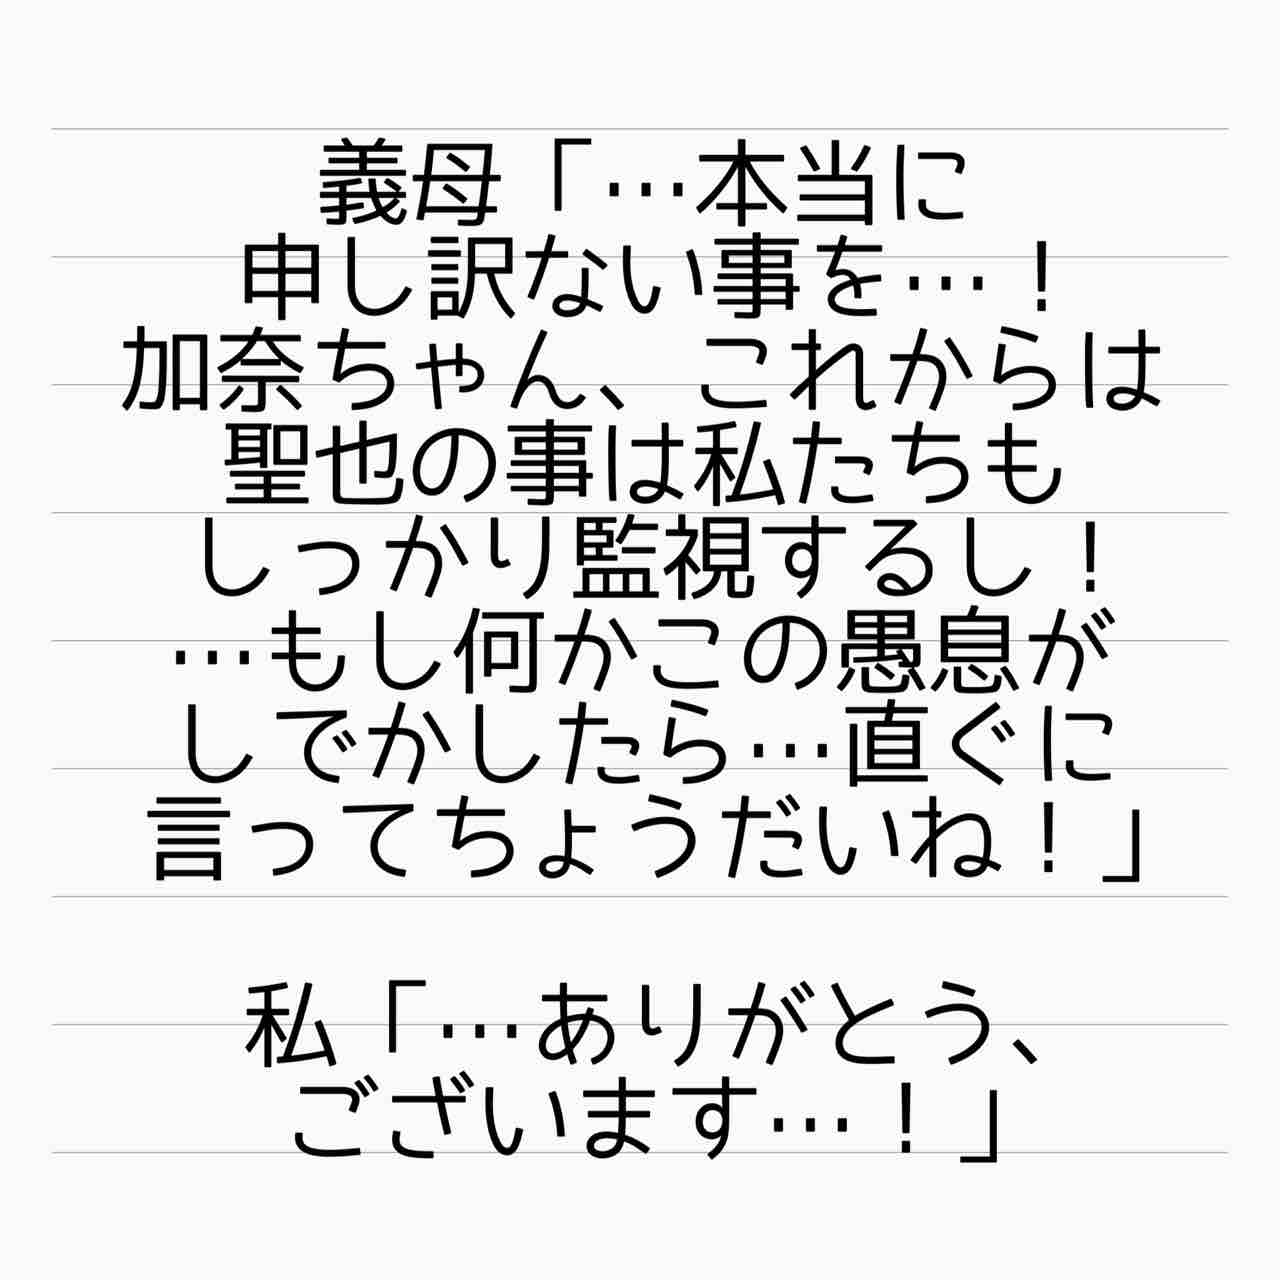 義母「…本当に
申し訳ない事を…！
加奈ちゃん、これからは
聖也の事は私たちも
しっかり監視するし！
…もし何かこの愚息が
しでかしたら…直ぐに
言ってちょうだいね！」
私「…ありがとう、
ございます…！」